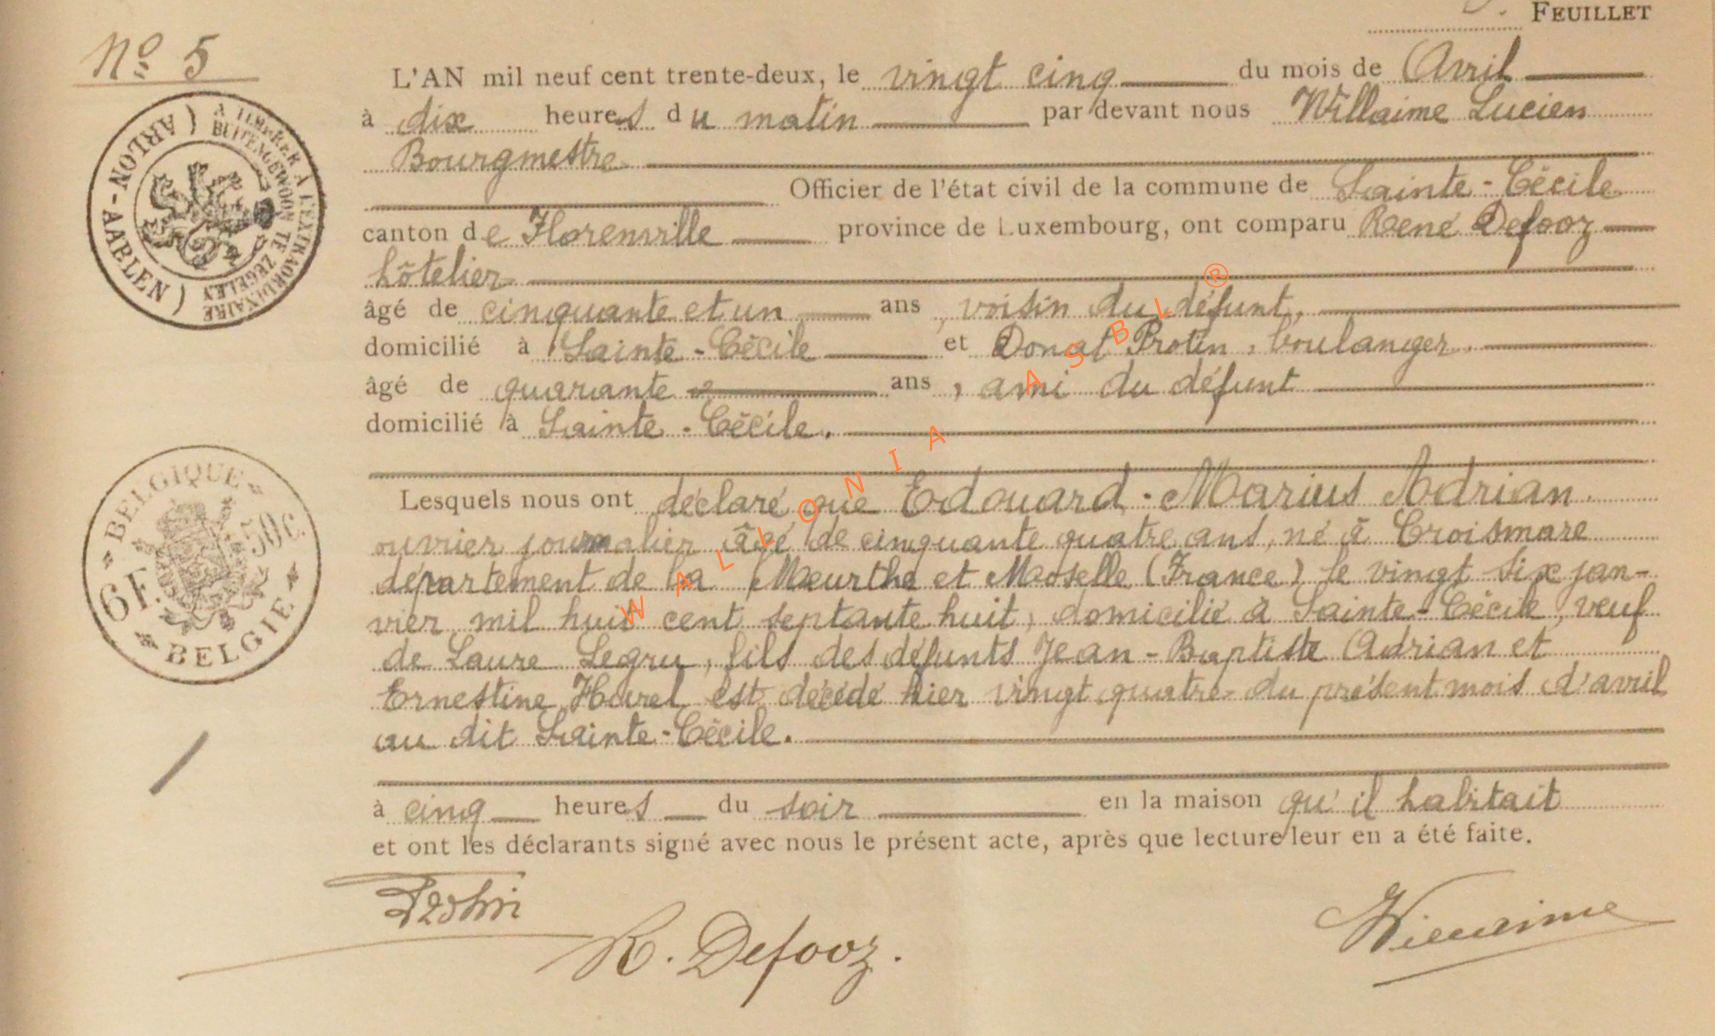 FEUILLET
No 5
L'AN mil neuf cent trente-deux, le vingt cinq du mois de Avril
à dix heures du matin par devant nous Willaime Lucien
Bourgmestre
Officier de l'état civil de la commune de Sainte-Cécile
canton de Florenville province de Luxembourg, ont comparu René Defooz
hôtelier
âgé de cinquante et un ans, voisin du défunt,
domicilié à Sainte-Cécile et Donat Protin, boulanger
âgé de quarante ans, ami du défunt
domicilié à Sainte-Cécile.
Lesquels nous ont déclaré que Edouard-Marius Adrian
ouvrier journalier âgé de cinquante quatre ans, né à Croismare
département de la Meurthe et Moselle (France) le vingt six jan-
vier mil huit cent septante huit, domicilié à Sainte-Cécile, veuf
de Laure Legru, fils des défunts Jean-Baptiste Adrian et
Ernestine est décédé hier vingt quatre du présent mois d'avril
au dit Sainte-Cécile.
à cinq heures du soir en la maison qu'il habitait
et ont les déclarants signé avec nous le présent acte, après que lecture leur en a été faite.
R. Defooz.
Willaime
(ARLON-AARLEN)
A TIMBRER A L'EXTRAORDINAIRE
BUITENGEWOON TE ZEGELEN
BELGIQUE
6F. 50c
BELGIE
WALLONIA ASBL ®